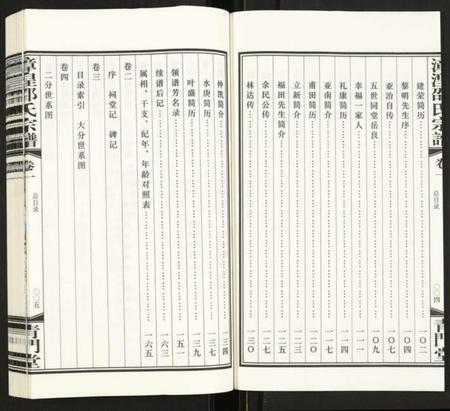 漳湟邵氏宗譜 卷一 总目录 〇〇四 青門堂
建荣简历……一〇二
黎明先生序……一〇四
亚治自传……一〇七
五世同堂岳良……一〇九
幸福一家人……一一一
礼康简历……一一四
亚南简介……一一六
莆田简历……一一八
立新简介……一二〇
福田先生简介……一二五
余民公传……一二七
林达传……一三〇
仲凯简介……一三四
水庚简历……一三七
叶盛简历……一三九
领谱芳名录……一五一
续谱后记……一六三
属相、干支、纪年、年龄对照表……一六五
卷二
序 祠堂记 碑记
卷三
目录索引 大分世系图
卷四
二分世系图
漳湟邵氏宗譜 卷一 总目录 〇〇五 青門堂